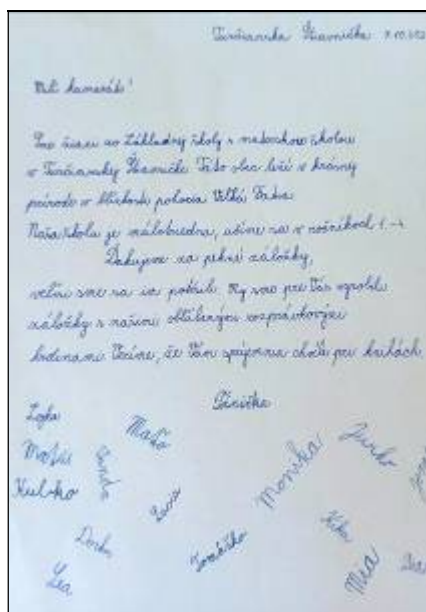 Turčianska Štiavnička 7.10.202
Milí kamaráti!
Sme žiaci zo Základnej školy s materskou školou
v Turčianskej Štiavničke Táto obec leží v krásnej
prírode v blízkosti pohoria Veľká Fatra
Naša škola je málotriedna, učíme sa v ročníkoch 1.-4
Ďakujeme za pekné záložky,
veľmi sme sa im potešili. My sme pre Vás vyrobili
záložky s našimi obľúbenými rozprávkovými
hrdinami Veríme, že Vám spríjemnia chvíle pri knihách.
Zojka
Maťko
Junko
Kubko
Monika
Dorka
Tomáško
Kika
Lea
Mia